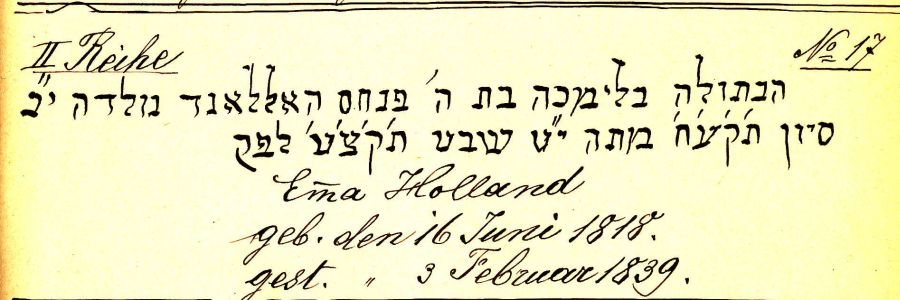 II Reihe
№ 17
הבתולה בלימכה בת ה' פנחס האללאנד נולדה י"ב
סיון ת'ק'ע'ח' מתה י"ט שבט ת'ק'צ'ט' לפק
Em̄a Holland
geb. den 16 Juni 1818.
gest. „ 3 Februar 1839.